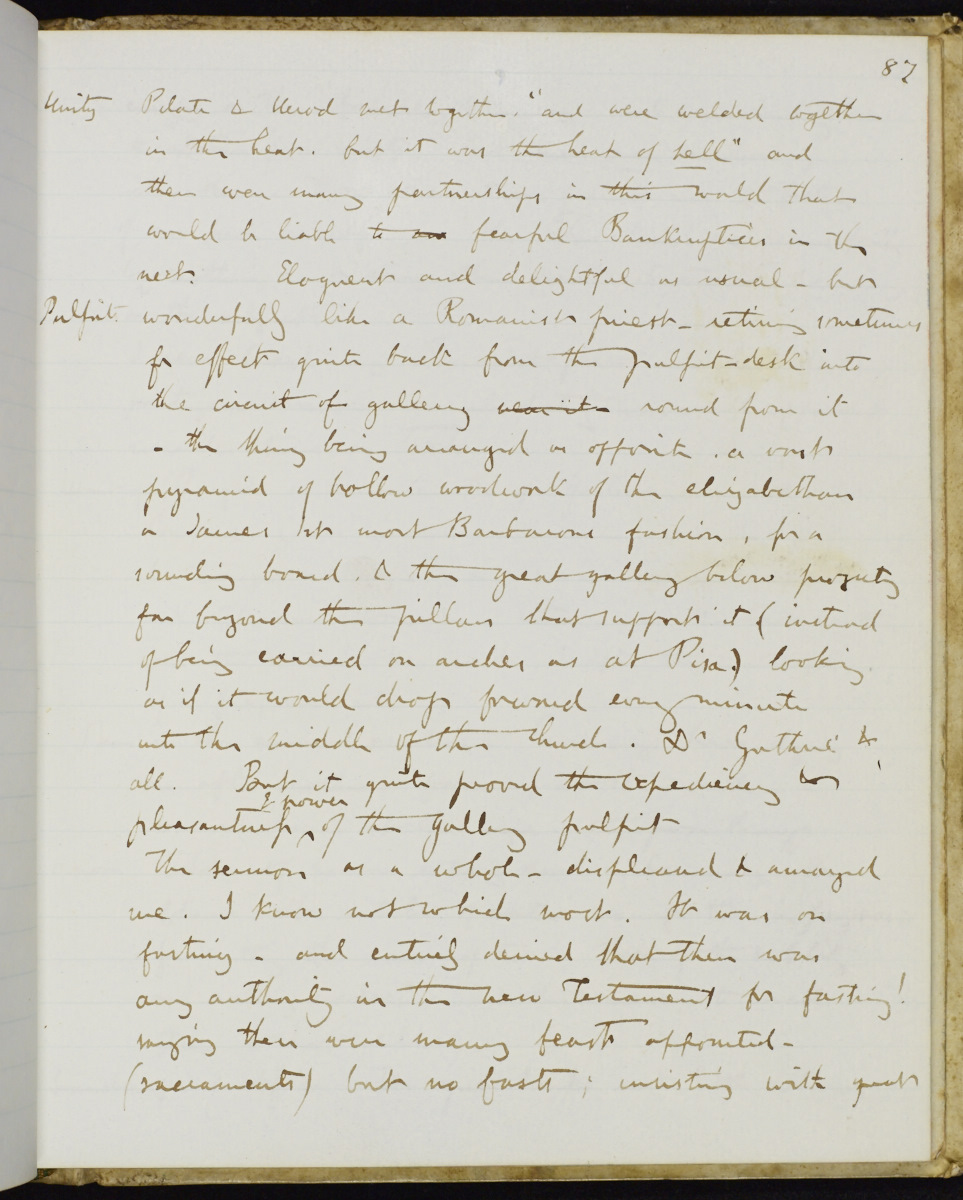 87
Unity Pilate & Herod met together. "and were welded together
in the heat. but it was the heat of hell" and
there were many partnerships in this world that
would be liable to an fearful Bankruptcies in the
next. Eloquent and delightful as usual - but
Pulpit. wonderfully like a Romanist priest - retiring sometimes
for effect quite back from the pulpit-desk into
the circuit of gallery near it - round from it
- the thing being arranged as opposite. a vast
pyramid of hollow woodwork of the elizabethan
or James 1st most Barbarous fashion, for a
sounding board. & the great gallery below projecting
far beyond the pillars that support it (instead
of being carried on arches as at Pisa) looking
as if it would drop forward every minute
into the middle of the church. Dr Guthrie &
all. But it quite proved the expediency &
& power
pleasantness of the Gallery pulpit
The sermon as a whole - displeased & amazed
me. I know not which most. It was on
fasting - and entirely denied that there was
any authority in the new Testament for fasting!
saying there were many feasts appointed -
(sacraments) but no fasts; insisting with great